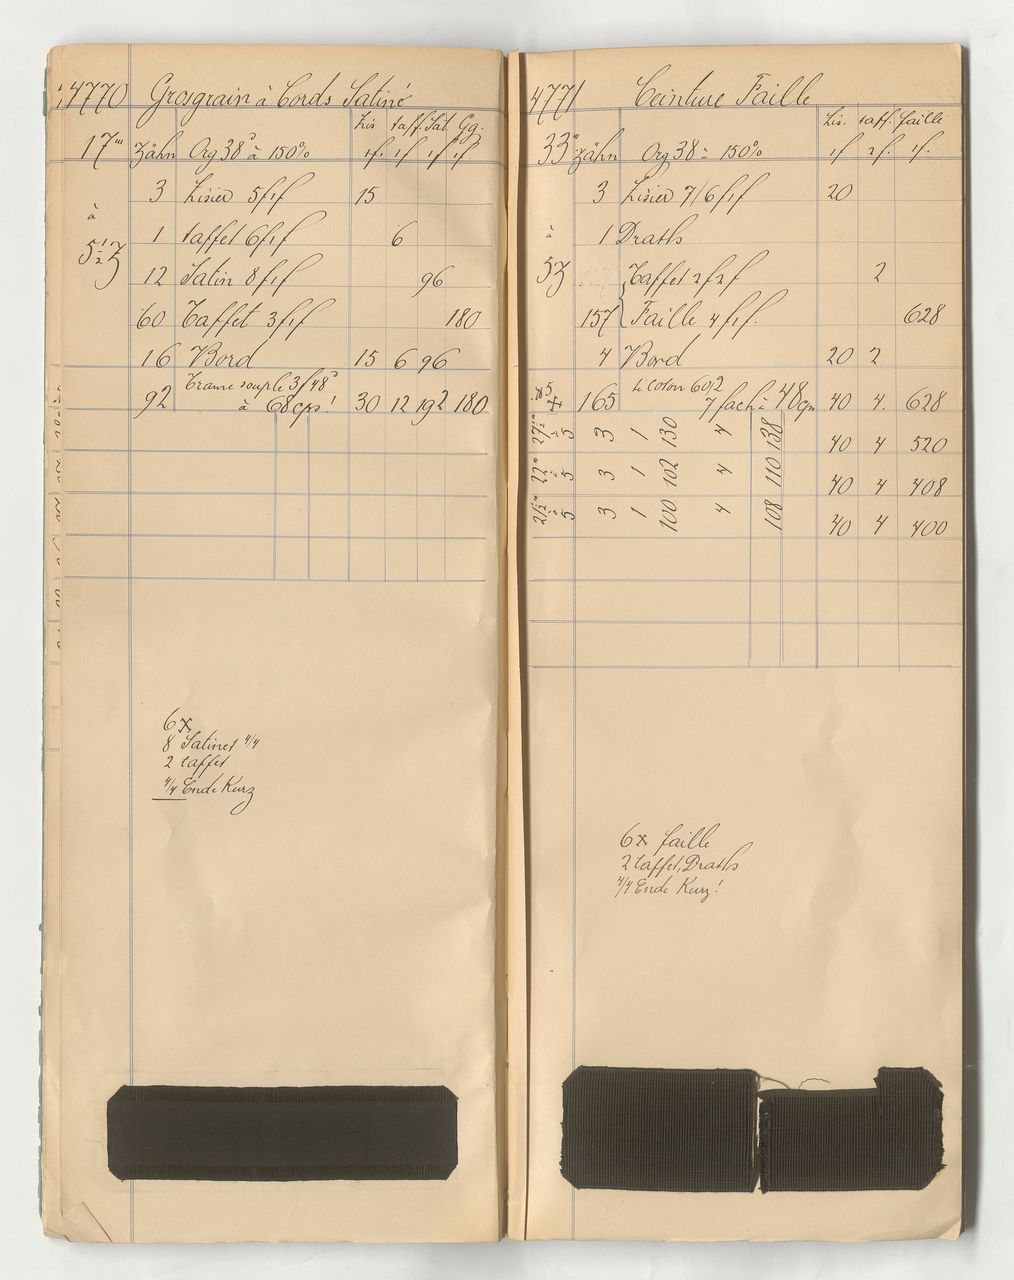 4770 Grosgrain à Cords Satiné
Lis taff. Sat. Gg.
17''' Zähn Org 38 à 150% 1f. 1f 1f 1f.
3 Lisier 5f1f 15
à
1 taffet 6f1f 6
5½ Z
12 Satin 8f1f 96
60 Taffet 3f1f 180
16 Bord 15 6 96
Trame souple 3f 48
92 à 68 cps! 30 12 192 180
6x
8 Satinet 4/4
2 taffet
4/4 Ende Kurz
4771 Ceinture Faille
Lis. taff. faille
33''' Zähn Org 38 à 150% 1f 2f. 1f.
3 Lisier 7/6 f1f 20
à 1 Draths
5Z Taffet 2f2f 2
157 Faille 4f1f. 628
4 Bord 20 2
165 Licoton 60/2
7fach à 48 cps 40 4. 628
27½''' à 5 3 1 130 4 138 40 4 520
22''' à 5 3 1 102 4 110 40 4 408
21½''' à 5 3 1 100 4 108 40 4 400
6x faille
2 taffet, Draths
4/4 Ende Kurz!